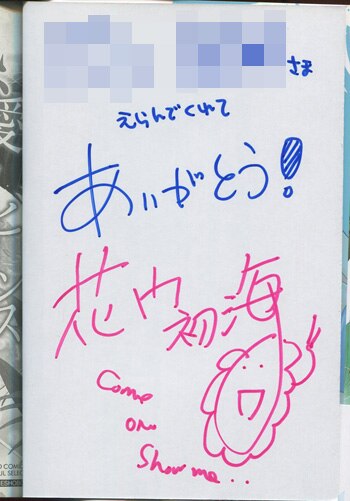 さま
えらんでくれて
ありがとう!
花内初海
Come
on
Show me..